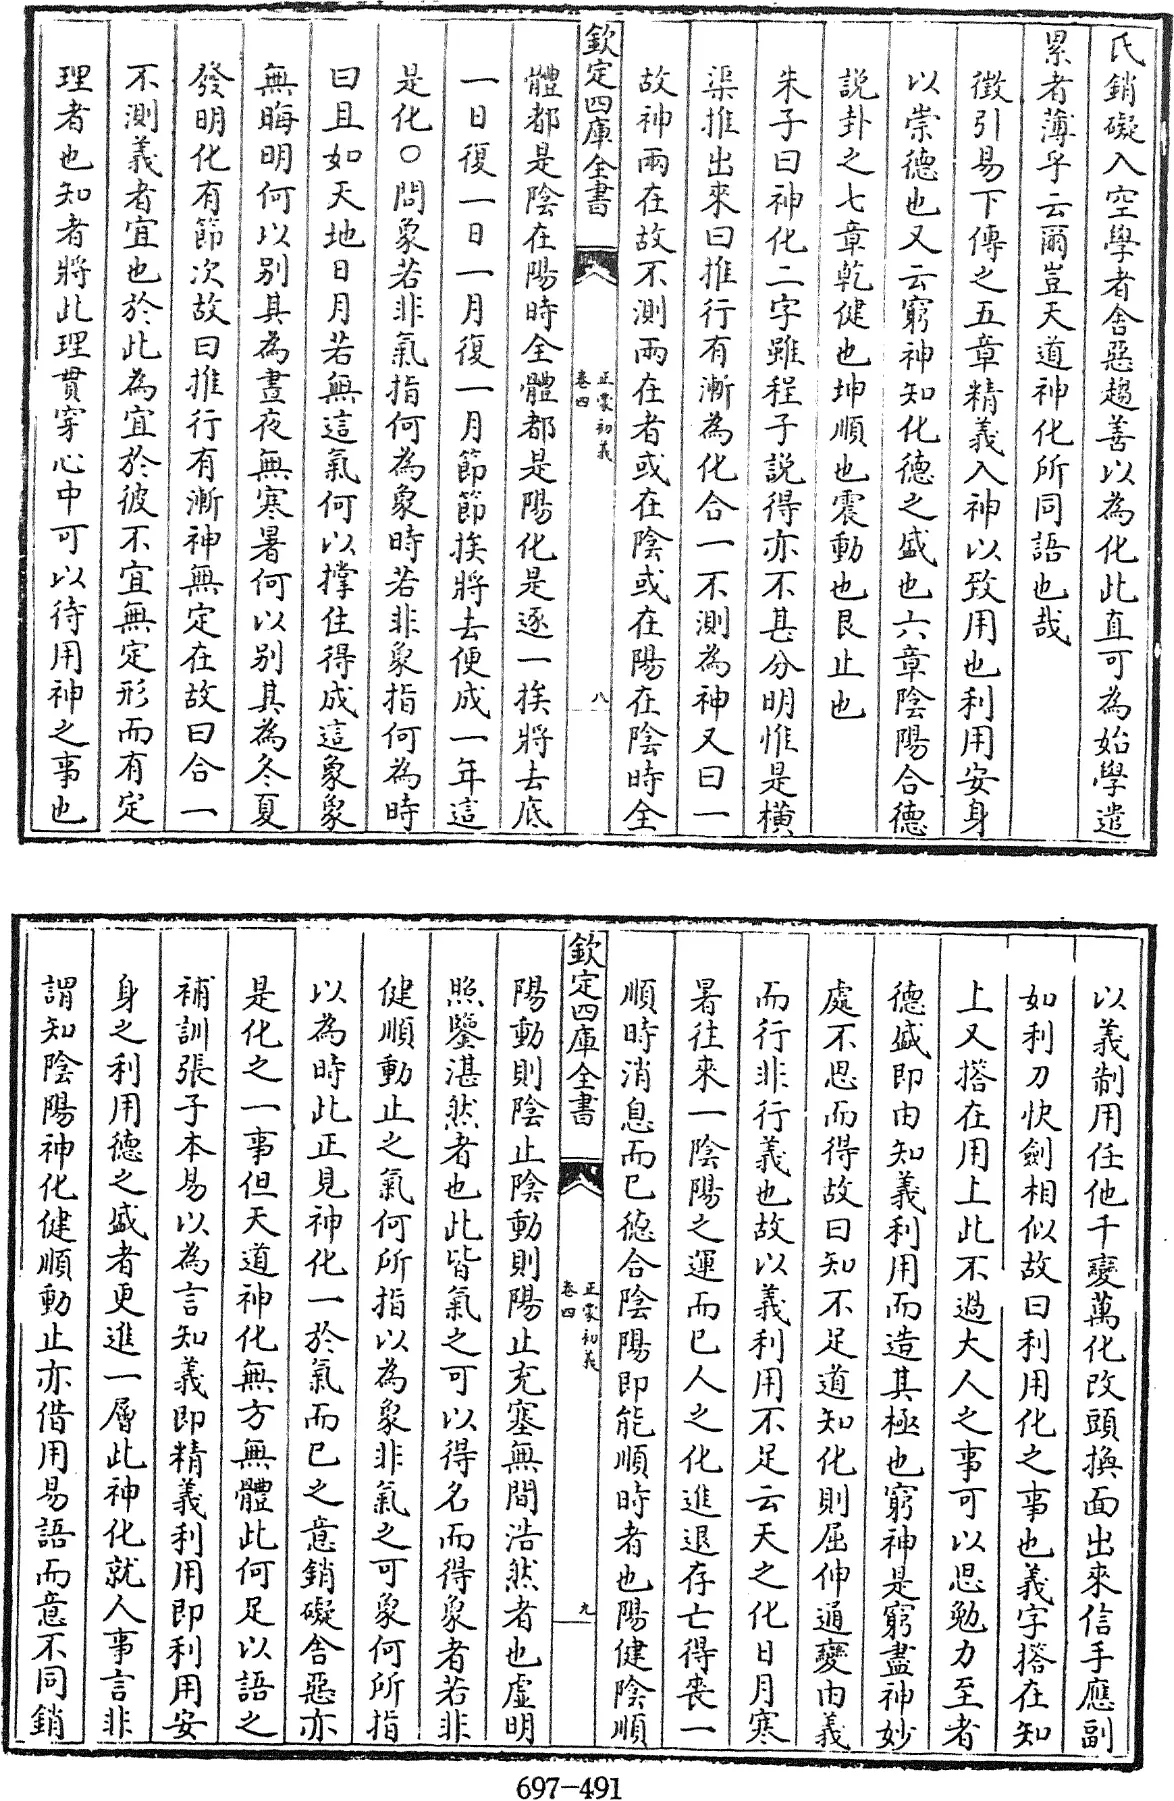 氏銷礙入空學者舍惡趨善以為化此直可為始學遣
累者薄乎云爾豈天道神化所同語也哉
徵引易下傳之五章精義入神以致用也利用安身
以崇德也又云窮神知化德之盛也六章陰陽合德
説卦之七章乾健也坤順也震動也艮止也
朱子曰神化二字雖程子説得亦不甚分明惟是橫
渠推出來曰推行有漸為化合一不測為神又曰一
故神兩在故不測兩在者或在陰或在陽在陰時全
欽定四庫全書
正蒙初義
卷四
八
體都是陰在陽時全體都是陽化是逐一挨將去底
一日復一日一月復一月節節挨將去便成一年這
是化○問象若非氣指何為象時若非象指何為時
曰且如天地日月若無這氣何以撑住得成這象象
無晦明何以别其為晝夜無寒暑何以别其為冬夏
發明化有節次故曰推行有漸神無定在故曰合一
不測義者宜也於此為宜於彼不宜無定形而有定
理者也知者將此理貫穿心中可以待用神之事也
以義制用任他千變萬化改頭換面出來信手應副
如利刀快劍相似故曰利用化之事也義字搭在知
上又搭在用上此不過大人之事可以思勉力至者
德盛即由知義利用而造其極也窮神是窮盡神妙
處不思而得故曰知不足道知化則屈伸通變由義
而行非行義也故以義利用不足云天之化日月寒
暑往來一陰陽之運而已人之化進退存亡得喪一
順時消息而已德合陰陽即能順時者也陽健陰順
欽定四庫全書
正蒙初義
卷四
九
陽動則陰止陰動則陽止充塞無間浩然者也虚明
照鑒湛然者也此皆氣之可以得名而得象者若非
健順動止之氣何所指以為象非氣之可象何所指
以為時此正見神化一於氣而已之意銷礙舍惡亦
是化之一事但天道神化無方無體此何足以語之
補訓張子本易以為言知義即精義利用即利用安
身之利用德之盛者更進一層此神化就人事言非
謂知陰陽神化健順動止亦借用易語而意不同銷
697-491